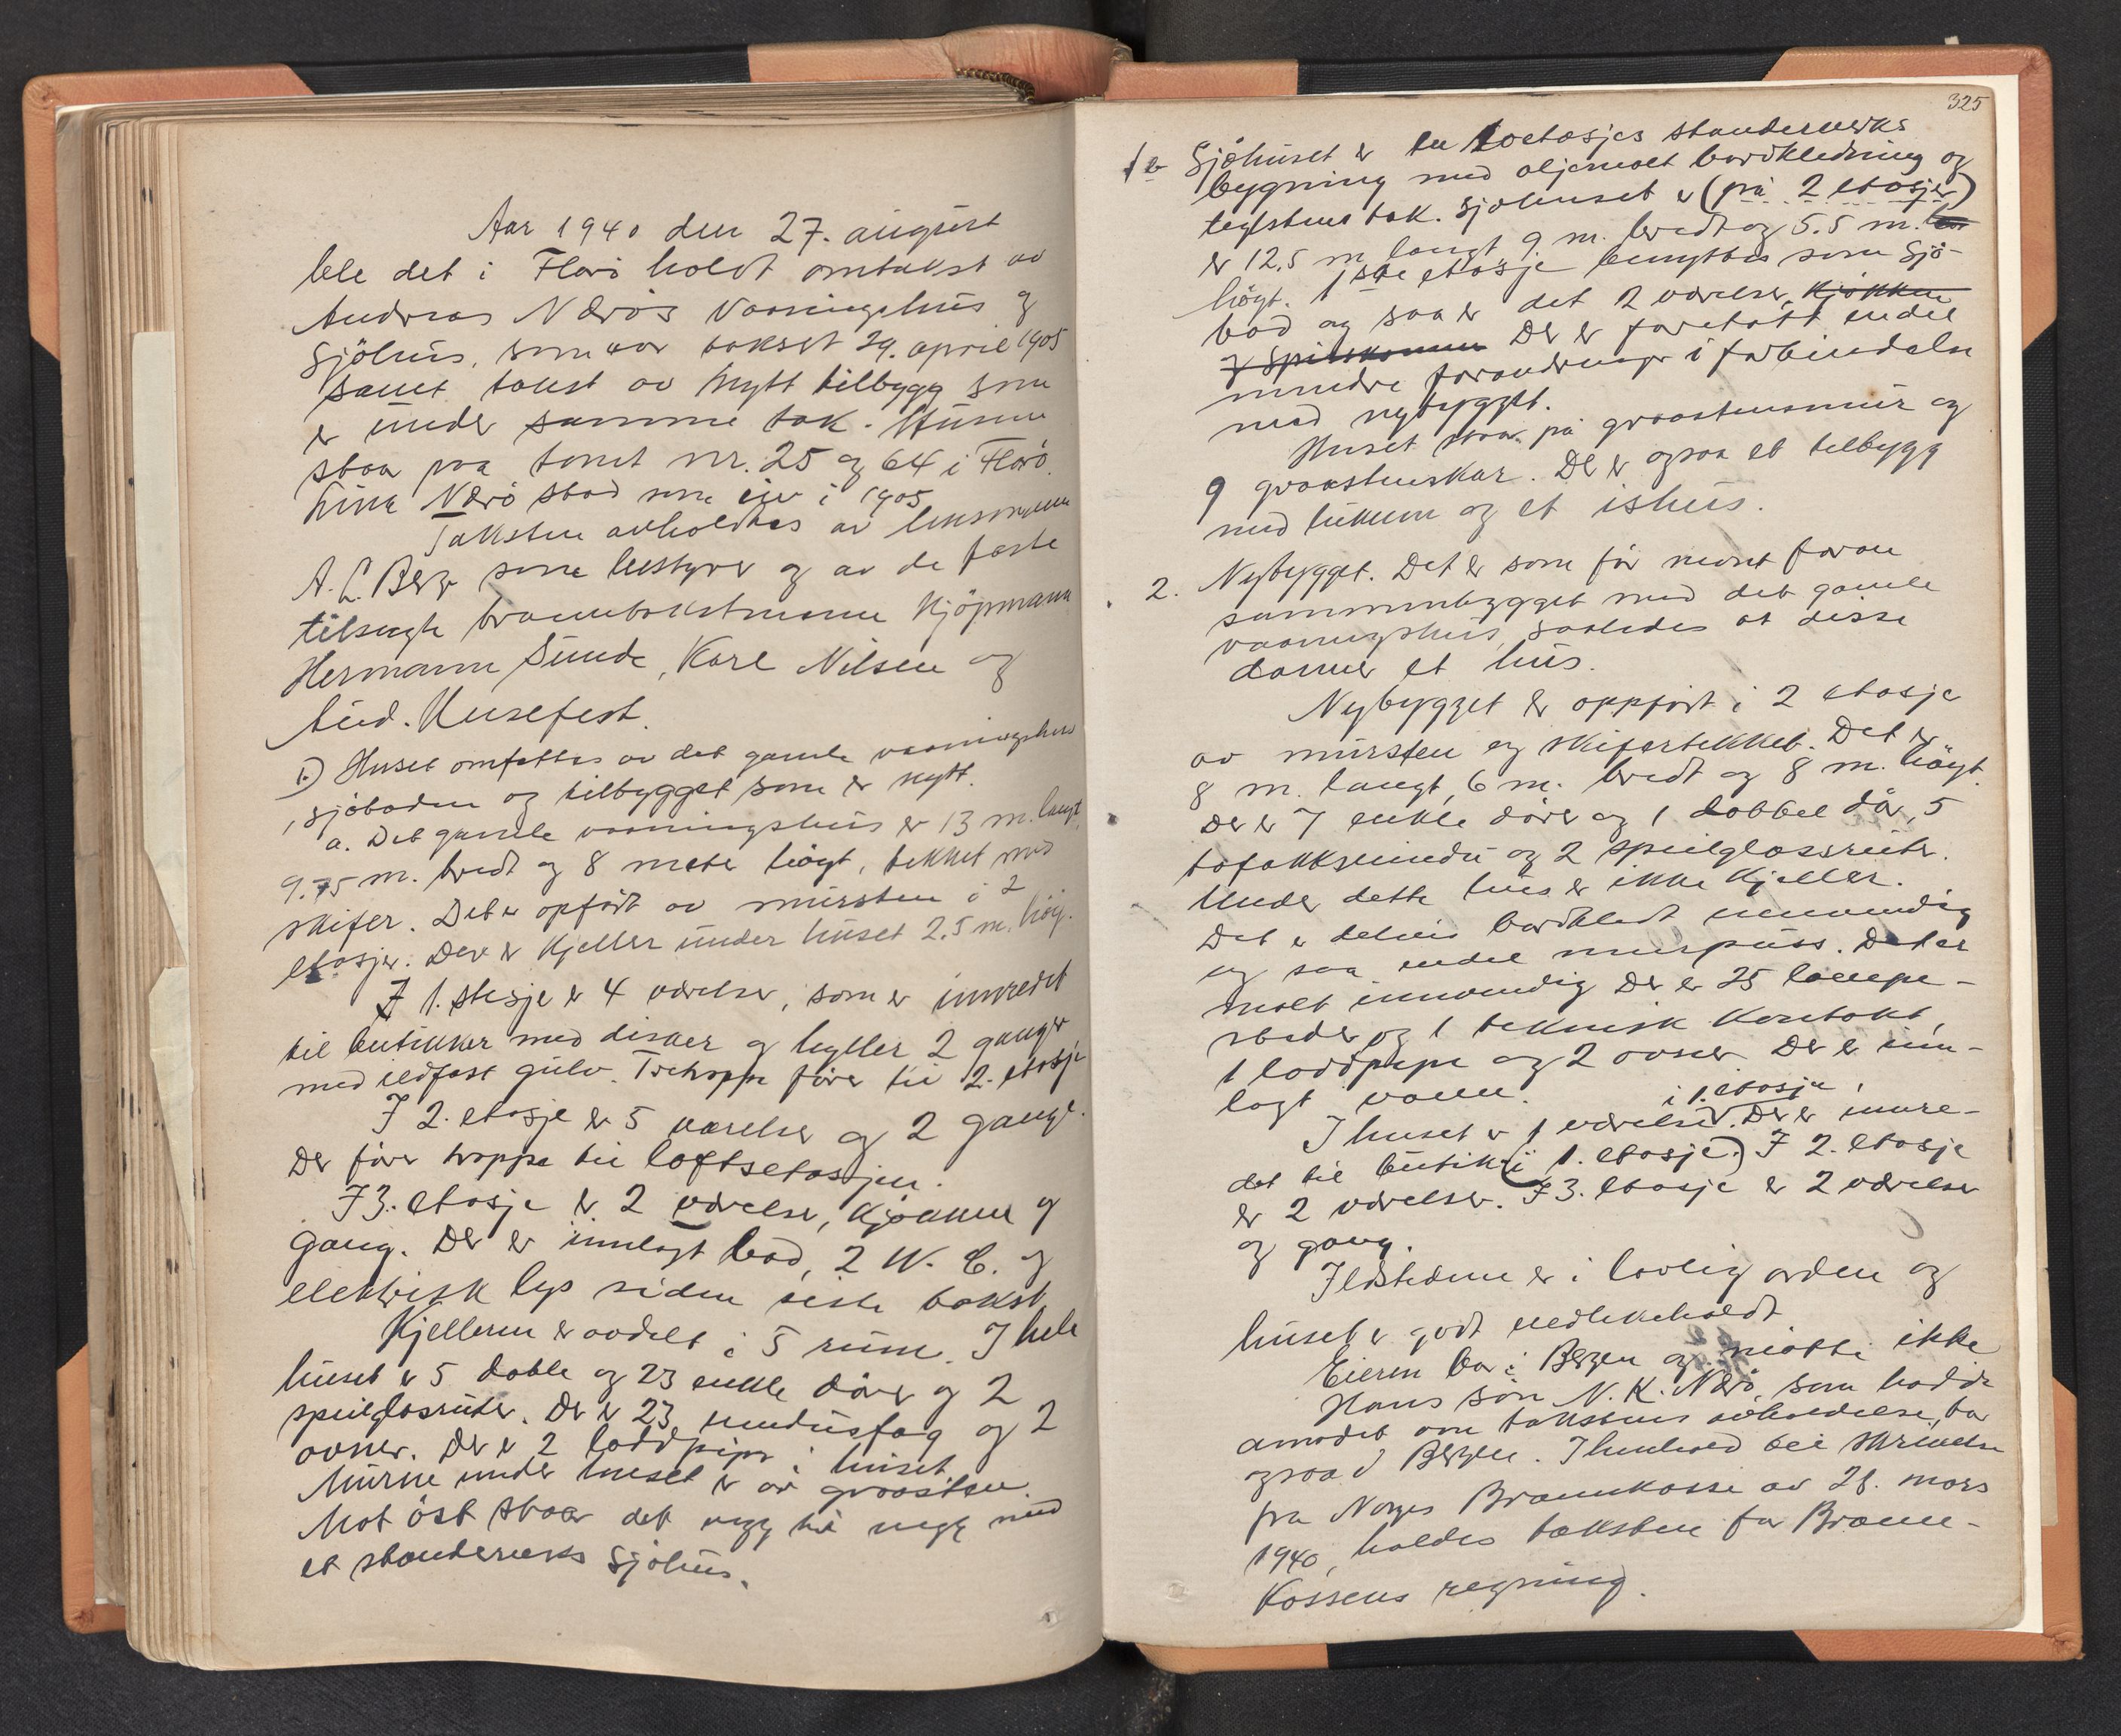 Aar 1940 den 27. august
ble det i Florö holdt omtakst av
Andreas Nærös Vaaningshus og
Sjöhus, som var takset 29. april 1905
samt takst av nytt tilbygg som
er under samme tak. Husene
staar paa tomt nr. 25 og 64 i Florö.
Nærö stod som eier i 1905
Taksten avholdtes av lensmann
A. L. Berge som bestyrer og av de faste
tilsagte branntakstmenn Kjöpmann
Hermann Sunde, Karl Nilsen og
And. Husefest.
1.) Huset omfattes av det gamle vaaningshus
, sjöboden og tilbygget som er nytt.
a. Det gamle vaaningshus er 13 m. langt,
9.75 m. bredt og 8 meter höyt, tekket med
skifer. Det er opfört av mursten i 2
etasjer. Der er Kjeller under huset 2.5 m. höy.
I 1. etasje er 4 værelser, som er innredet
til butikker med disker og hyller 2 ganger
med ildfast gulv. Tretrappe förer til 2. etasje
I 2. etasje er 5 værelser og 2 ganger.
Der förer trappe til loftsetasjen.
I 3. etasje er 2 værelser, Kjökken og
gang. Der er innlagt bad, 2 W. C. og
elektrisk lys siden siste takst
Kjelleren er avdelt i 5 rum. I hele
huset er 5 doble og 23 enkle dörer og 2
speilglasruter. Der er 23 vindusfag og 2
ovner. Der er 2 loddpiper i huset
Murene under huset er av graasten.
Mot öst staar det vegg til vegg med
et standerverks Sjöhus.
325
1 b Sjöhuset er en toetasjes standerverks
bygning med oljemalt bordkledning og
teglstens tak. Sjöhuset er (på 2 etasjer)
er 12.5 m langt 9 m. bredt og 5.5 m.
höyt. 1ste etasje benyttes som Sjö-
bod og saa er det 2 værelser, Kjökken
og Spiskammer Der er foretatt endel
mindre forandringer i forbindelse
med nybygget.
Huset staar på graastensmur og
9 graastenskar. Der er ogsaa et tilbygg
med lukum og et ishus.
2. Nybygget. Det er som för nevnt foran
sammenbygget med det gamle
vaaningshus, saaledes at disse
danner et hus.
Nybygget er oppfört i 2 etasje
av mursten og skifertekket. Det er
8 m. langt, 6 m. bredt og 8 m. höyt.
Der er 7 enkle dörer og 1 dobbel dör, 5
tofaksvindu og 2 speilglassruter.
Under dette hus er ikke Kjeller.
Det er delvis bordkledt innvendig
og saa endel murpuss. Det er
malt innvendig Der er 25 lampe-
steder og 1 teknisk Kontakt,
1 loddpipe og 2 ovner Der er inn-
lagt vann.
i 1. etasje,
I huset er 1 værelse. Der er innre-
det til butik (i 1. etasje.) I 2. etasje
er 2 værelser. I 3. etasje er 2 værelser
og gang.
Ildstedene er i lovlig orden og
huset er godt vedlikeholdt.
Eieren bor i Bergen og mötte ikke
Hans sön N. K. Nærö, som hadde
anmodet om takstens avholdelse, bor
ogsaa i Bergen. I henhold til skrivelse
fra Norges Brannkasse av 28. mars
1940, holdes taksten for Brann-
Kassens regning.